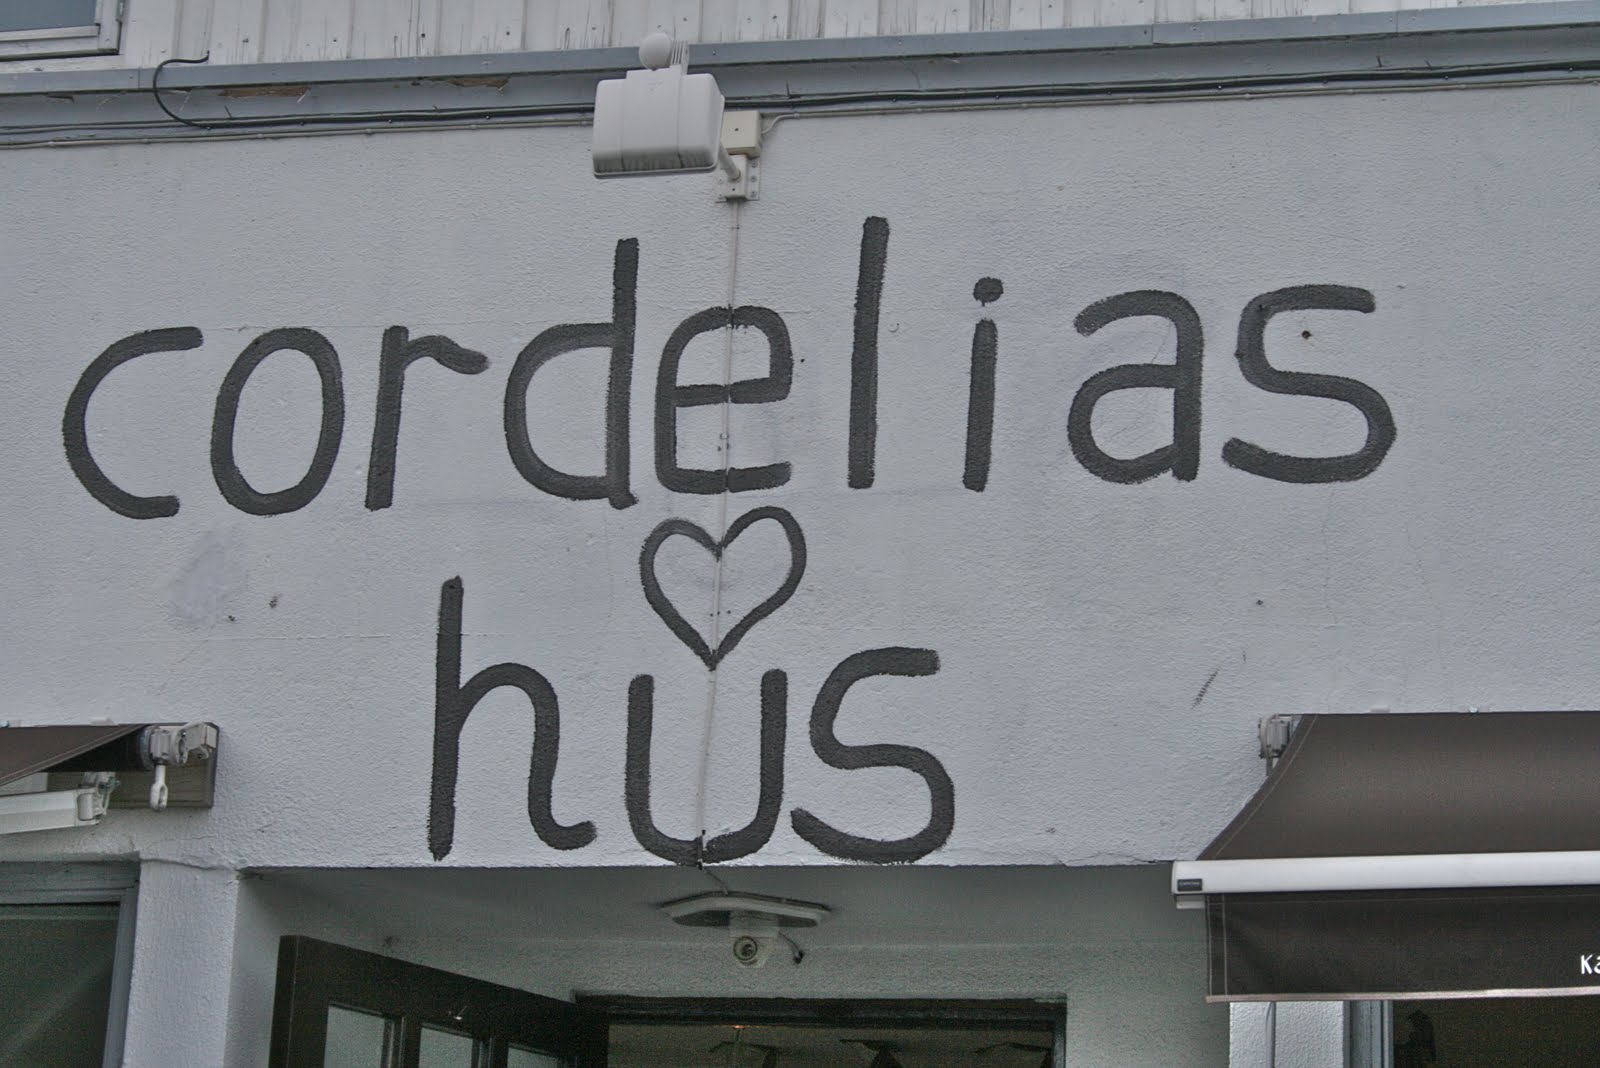 cordelias
hus